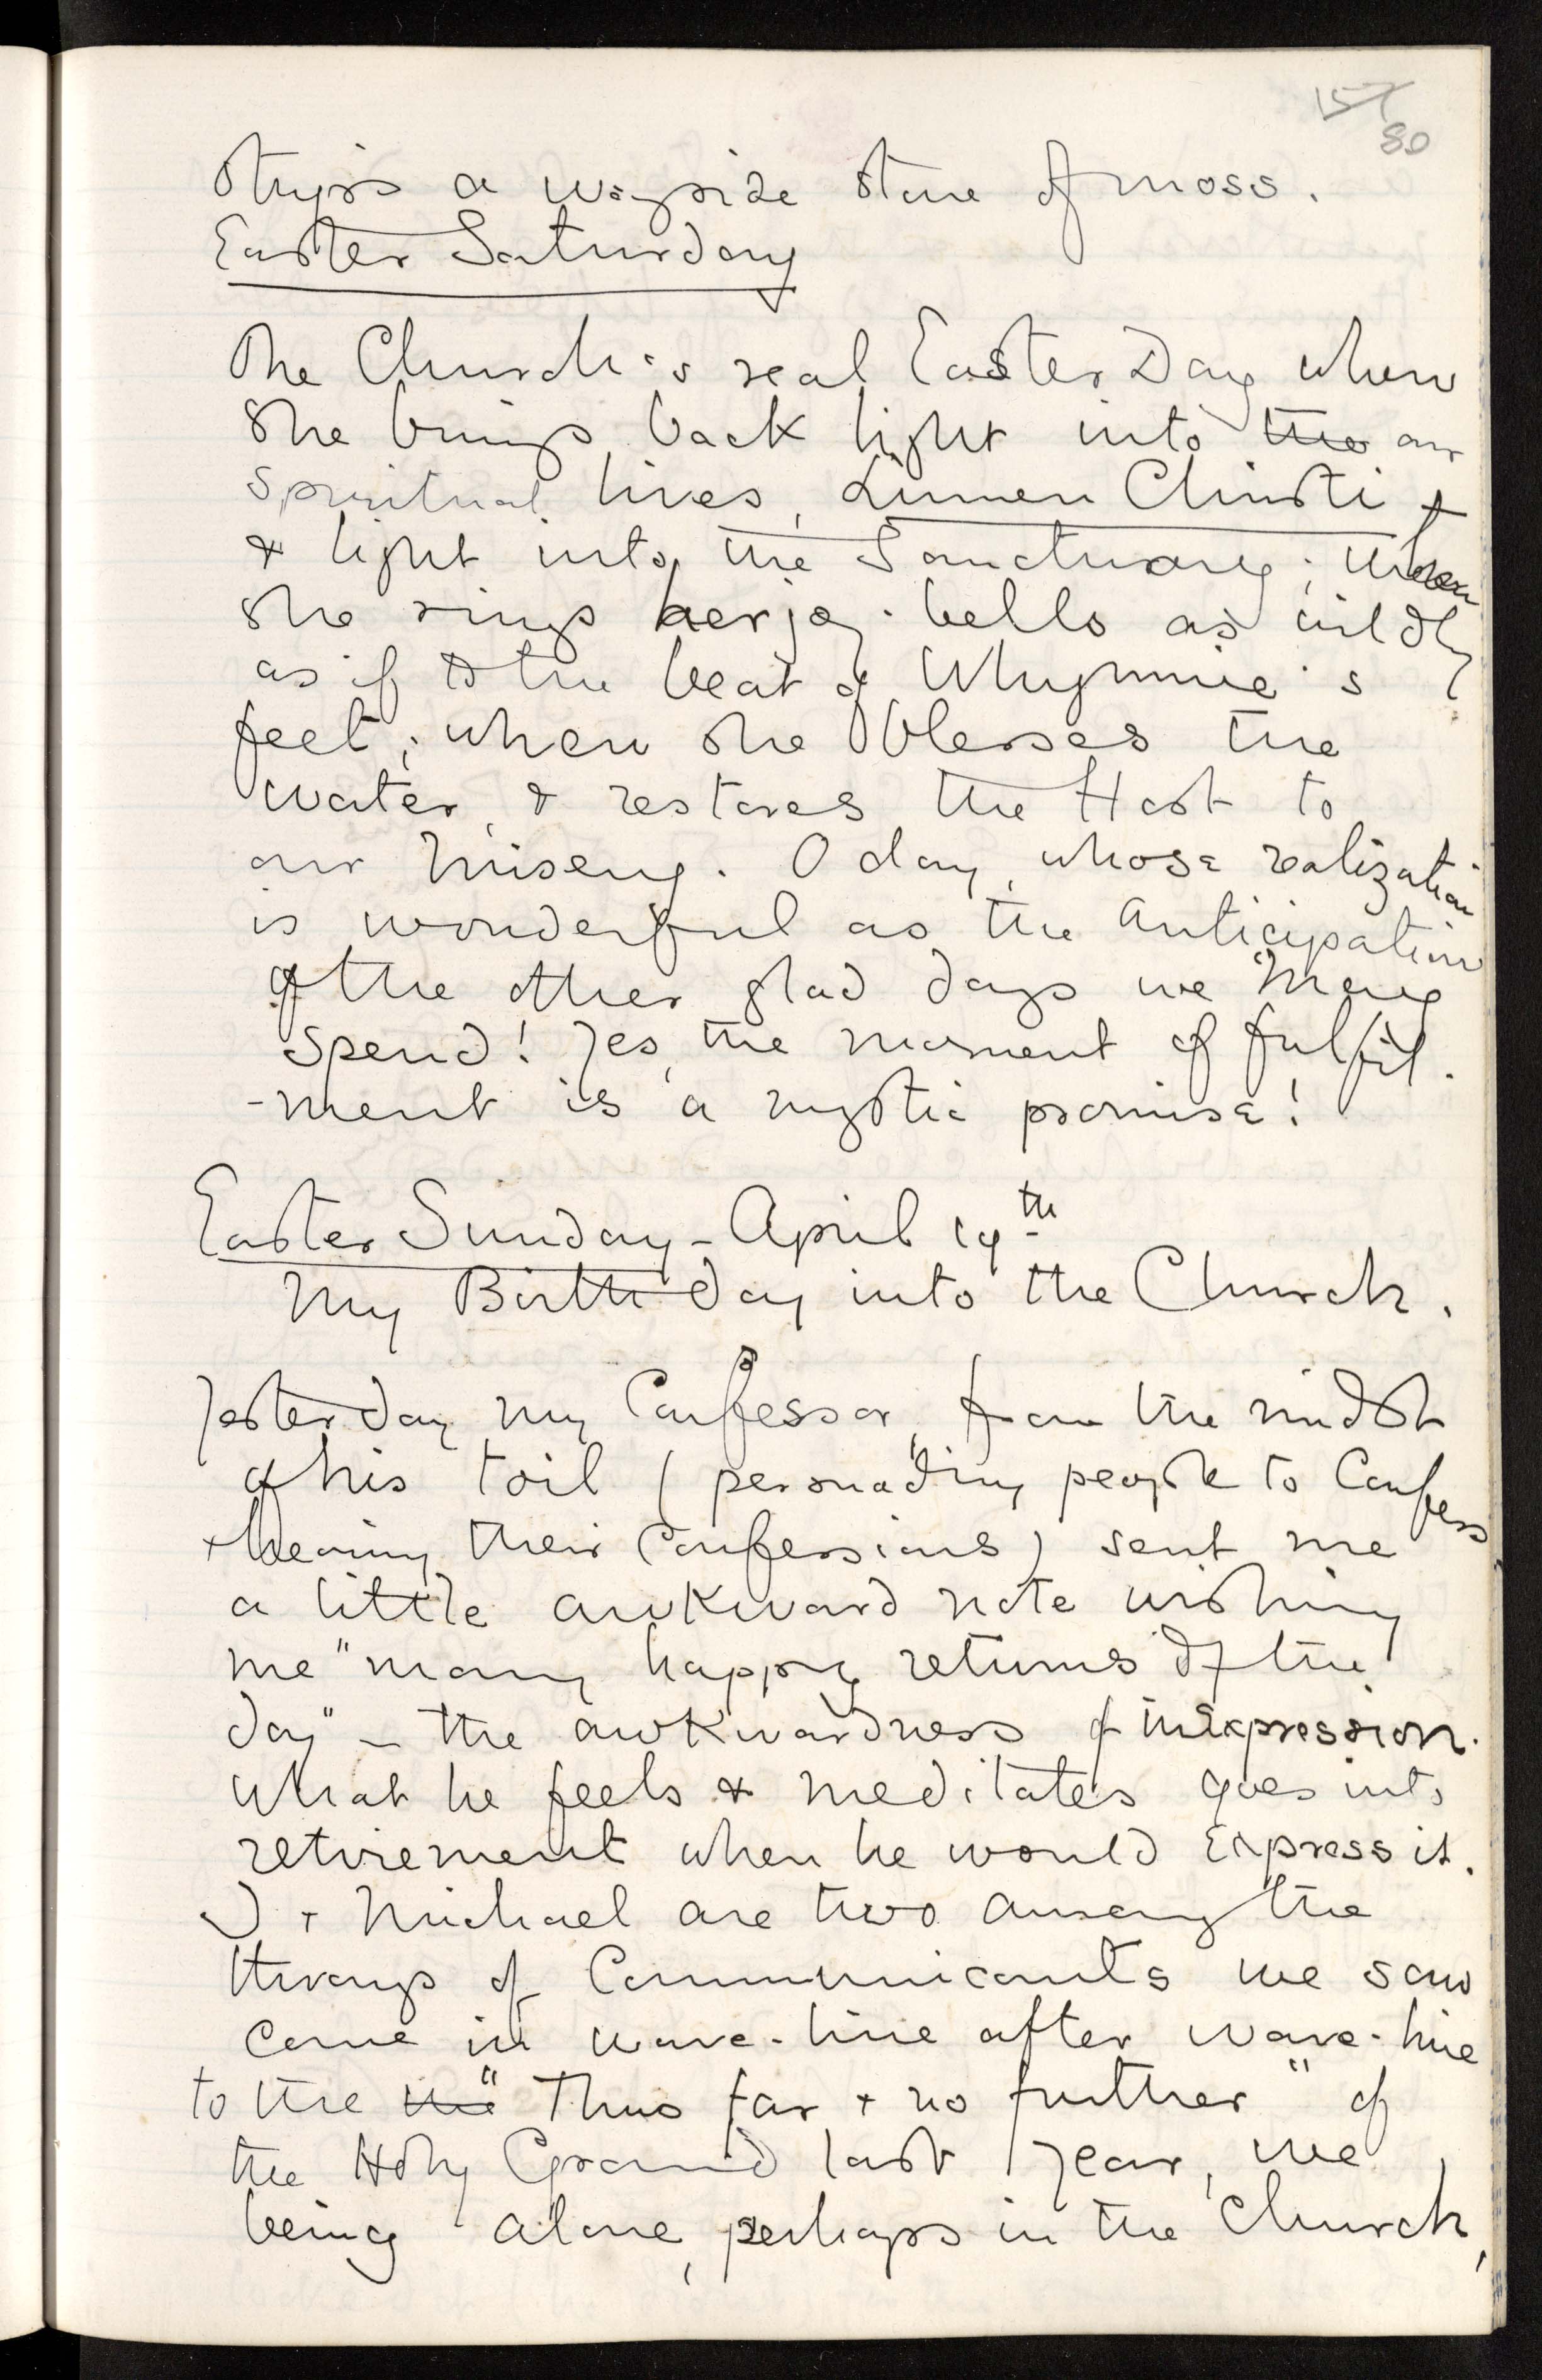 157
80
strips a wayside stone of moss.
Easter Saturday
The Church's real Easter Day when
She brings back light into the our
Spiritual lives, Lumen Christi +
& light into the Sanctuary; when
she rings her joy-bells as wildly
as if to the beat of Whymmie's
feet; when she blesses the
water, & restores the Host to
our Misery. O day, whose realization
is wonderful as the anticipation
of the other glad days we may
Spend! Yes, the moment of fulfil-
-ment is a mystic promise!
Easter Sunday - April 19th
My Birth-day into the Church.
Yesterday my Confessor, from the midst
of his toil (persuading people to Confess
+ hearing their Confessions) sent me
a little awkward note wishing
me "many happy returns of the
day" - the awkwardness of inexpression.
What he feels & meditates goes into
retirement when he would express it.
I + Michael are two among the
throngs of Communicants we saw
come in wave-line after wave-line
to the the "Thus far + no further" of
the Holy Ground last year, we
being alone, perhaps in the Church,